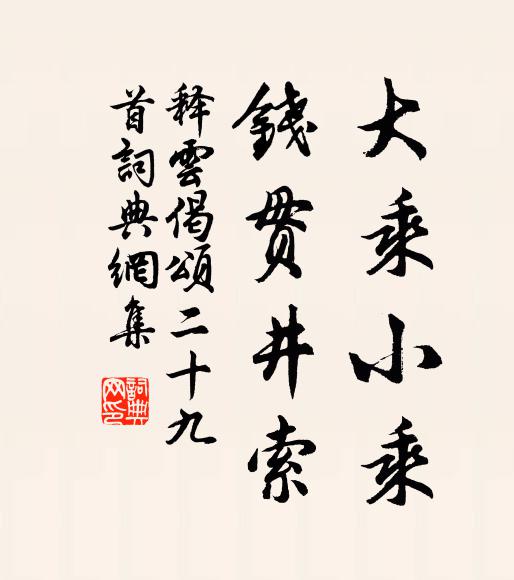 大乘小乘
錢貫井索
释雲偈頌二十九
首詞典網集
詞典网印